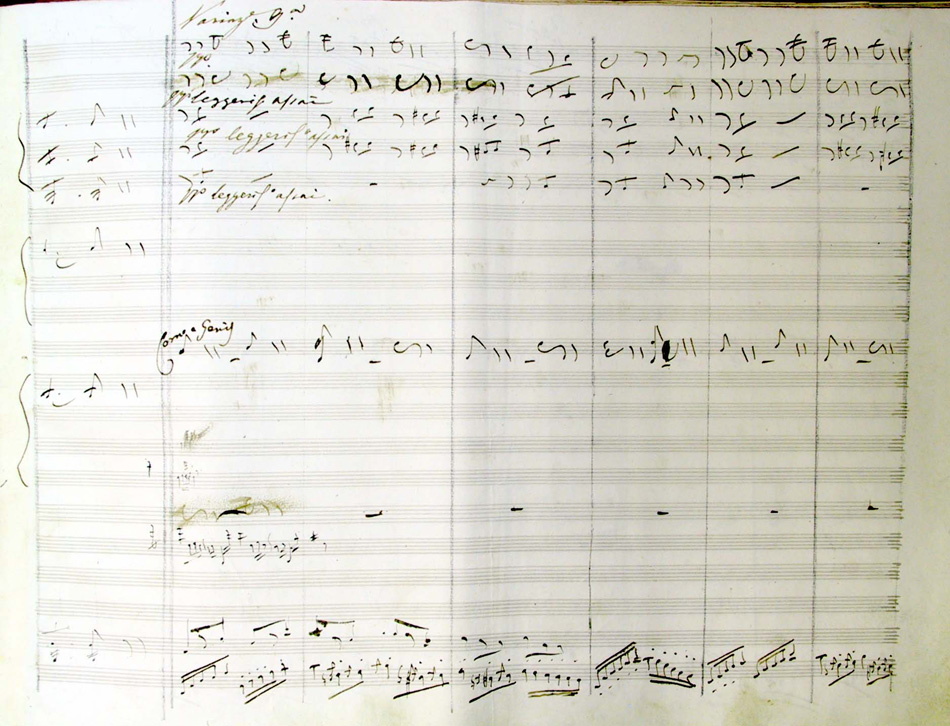 Variaz.e 9.a
ppo
ppo leggeriss.o assai
ppo leggeriss.o assai
ppo leggeriss.o assai.